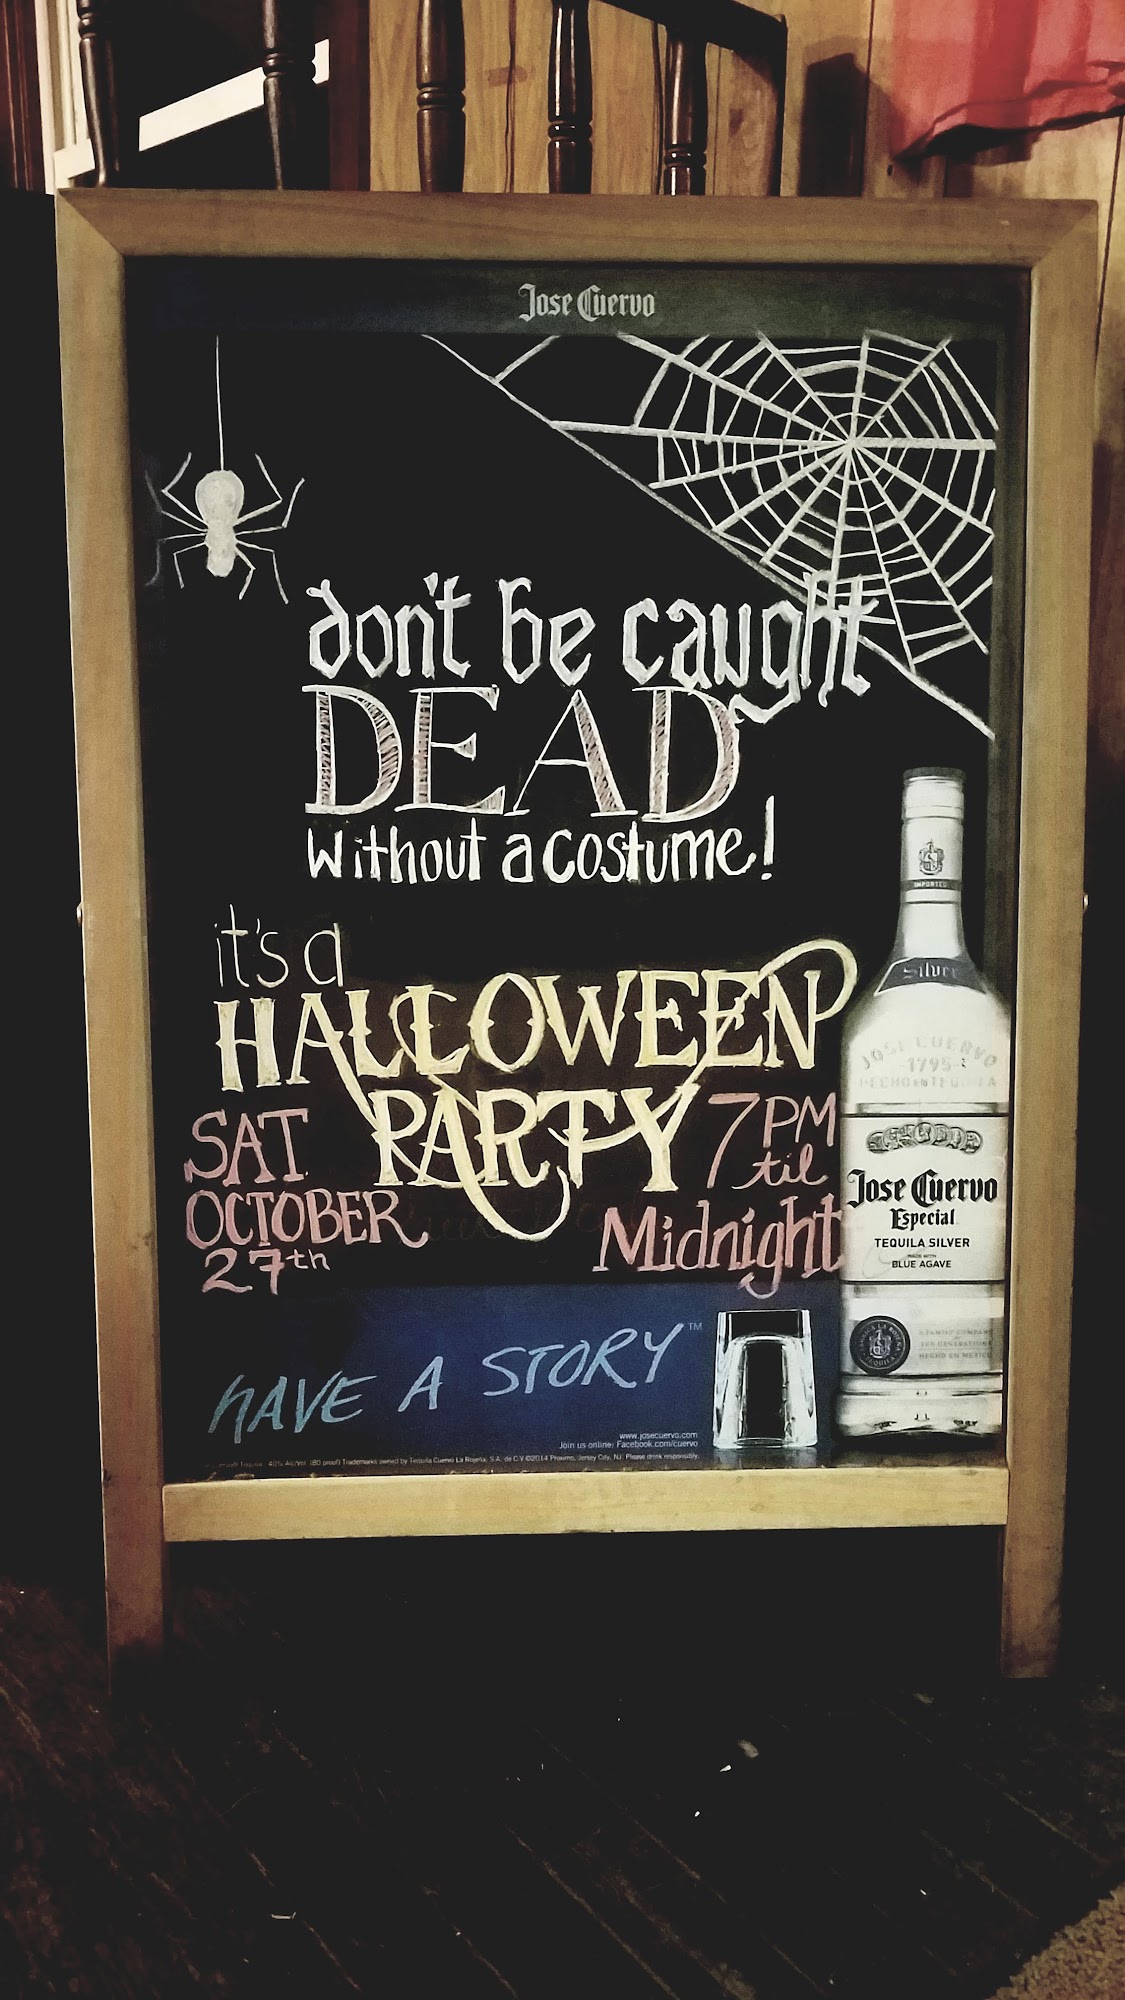 Jose Cuervo
don't be caught
DEAD
without a costume!
it's a
HALLOWEEN
PARTY
SAT
OCTOBER
27th
7PM
til
Midnight
IMPORTED
Silver
JOSE CUERVO
-1795-
HECHO EN TEQUILA
Jose Cuervo
Especial
TEQUILA SILVER
MADE WITH
BLUE AGAVE
HECHO EN MEXICO
HAVE A STORY™
www.josecuervo.com
Join us online: Facebook.com/cuervo
40% Alc/Vol. (80 proof) Trademarks owned by Tequila Cuervo La Rojeña, S.A. de C.V ©2014 Proximo, Jersey City, NJ. Please drink responsibly.